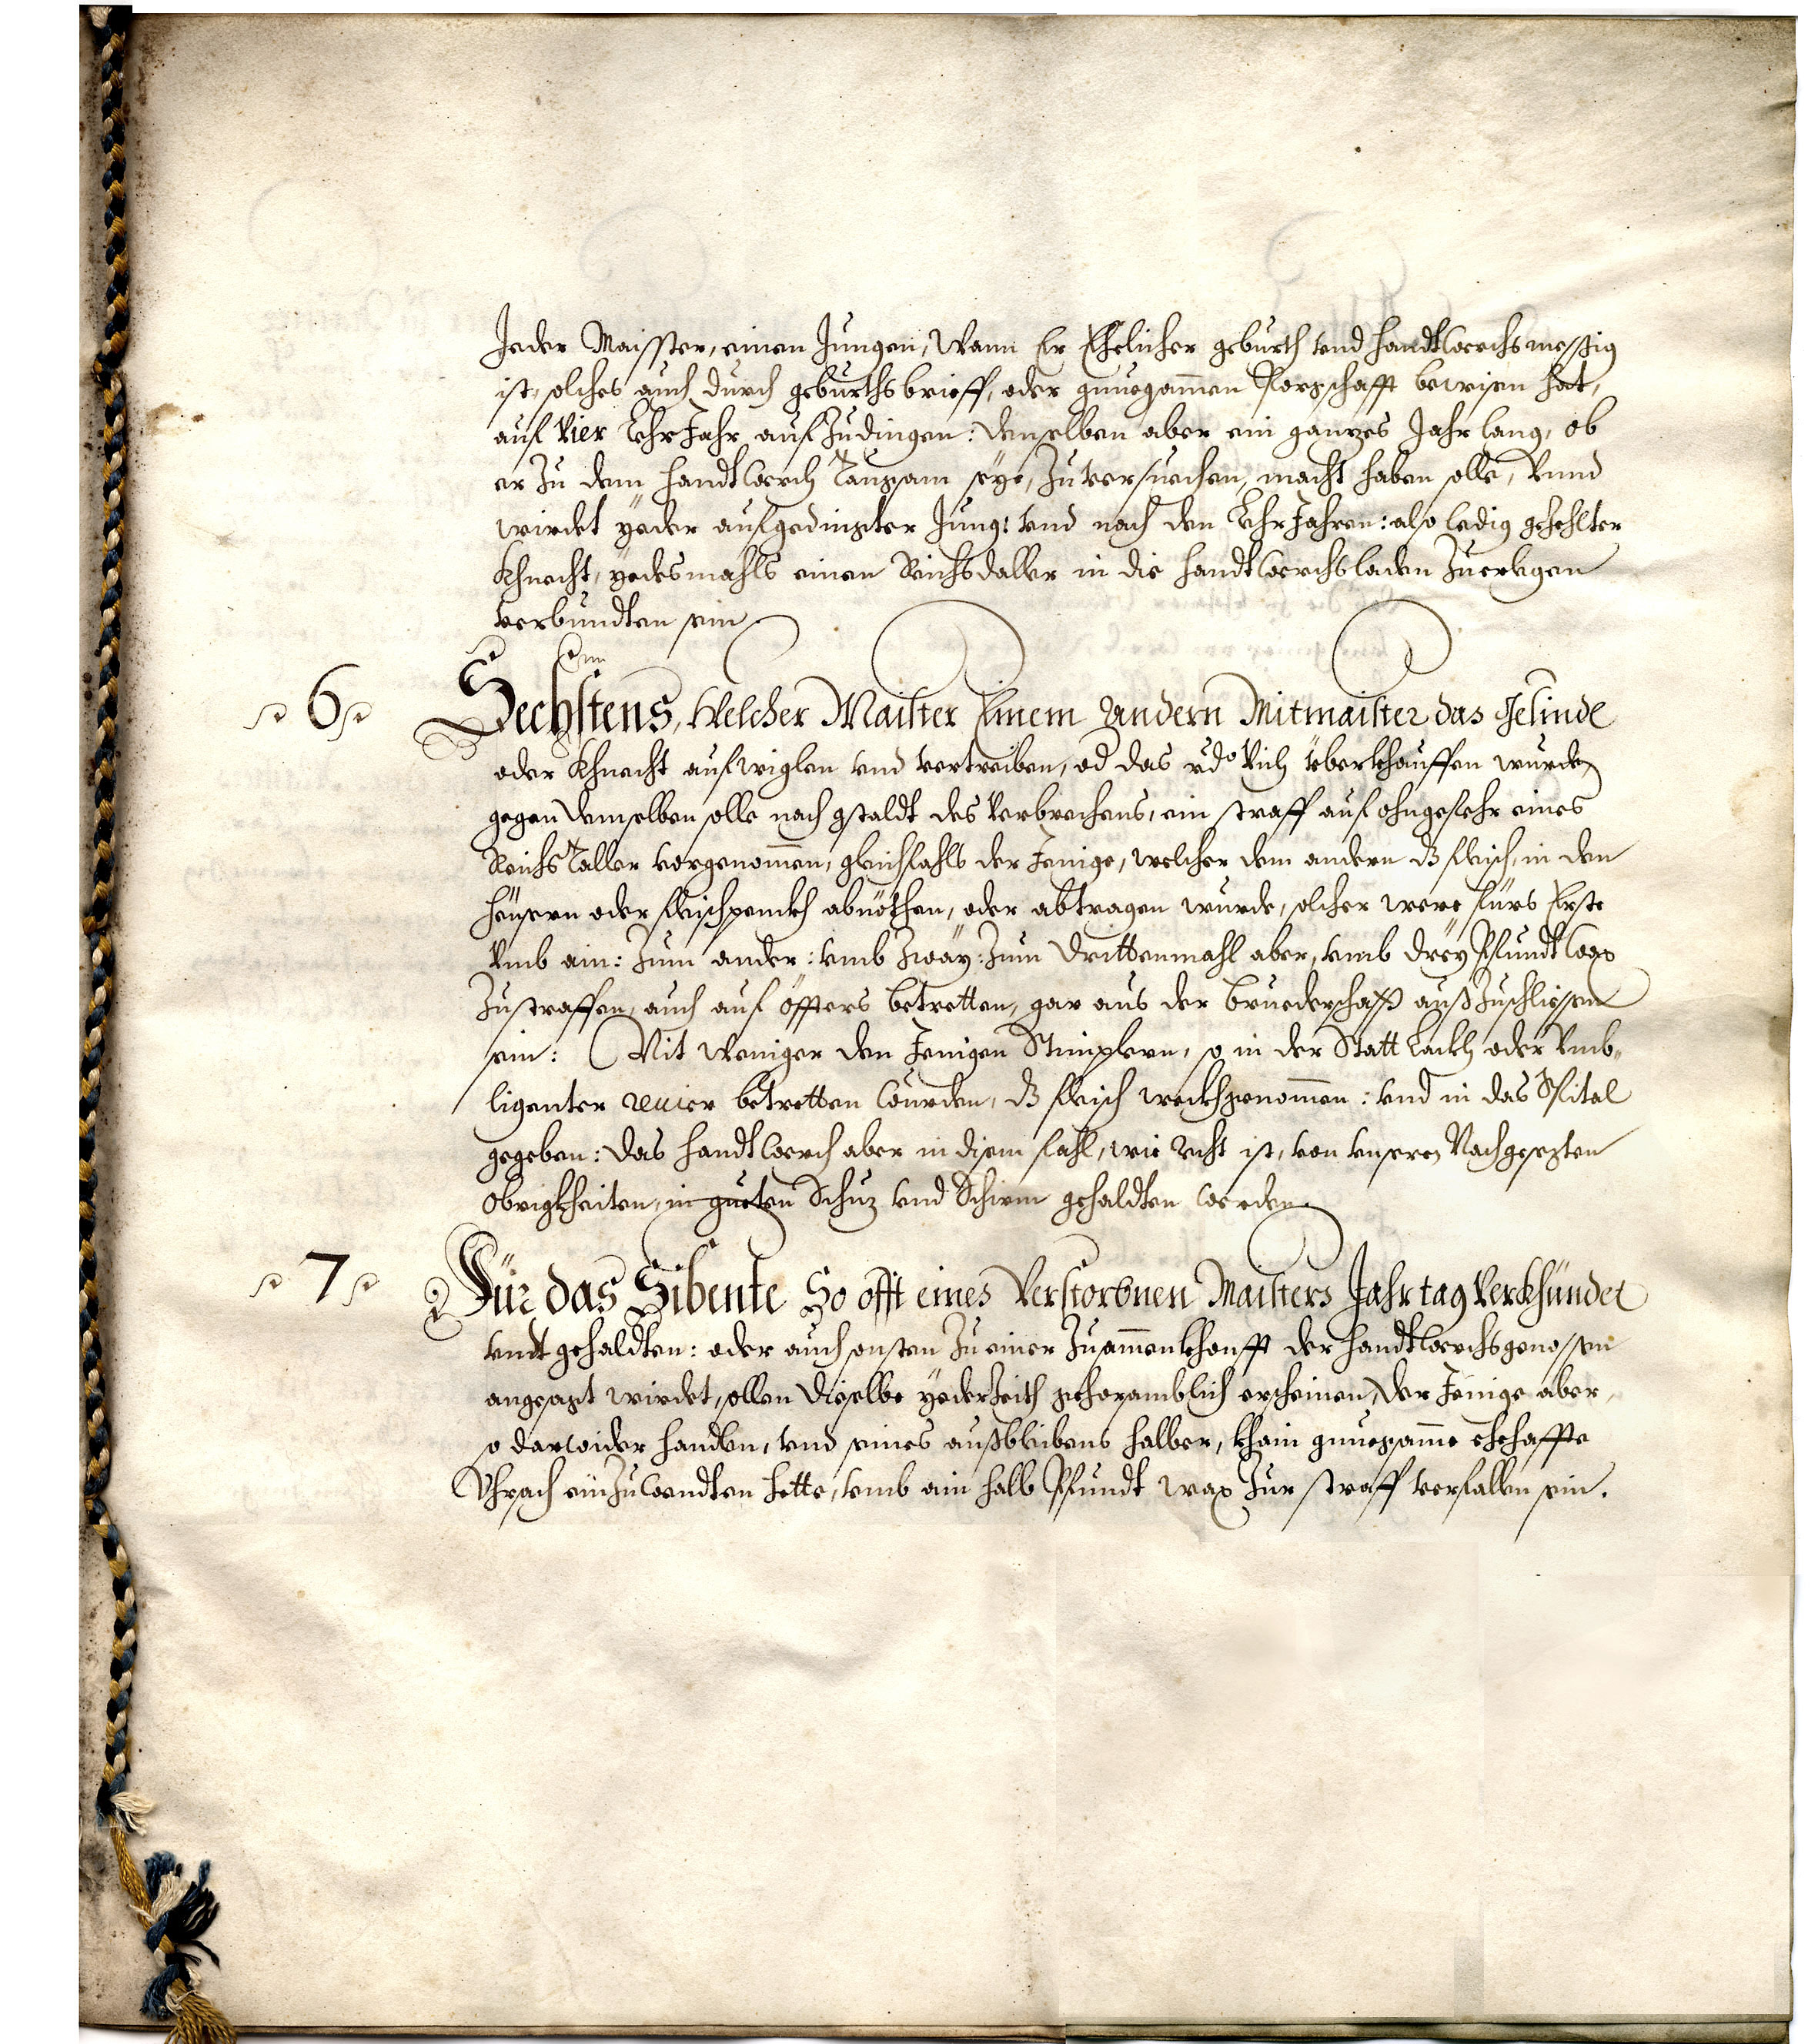 Jeder Maisster, einen Jungen, Wann Er Ehelicher geburth vnd handtwerchsmessig
ist, solches auch durch geburthsbrieff, oder gnuegsamen bewisen hat,
auf Vier LehrJahr aufZudingen: denselben aber ein ganzes Jahr lang, ob
er Zu dem handtwerch Taugsam seye, Zuversuechen, macht haben solle, Vnnd
wirdet yeder aufgedingter Jung: vnd nach den LehrJahren: also ledig gezehlter
Khnecht, yedesmahls einen Reichsdaller in die handtwerchsladen Zuerlegen
verbundten sein
6 Sechstens, Welcher Maister Einem Andern Mitmaister das Gesinde
oder Khnecht aufwiglen vnd vertreiben, od das Vich yberkhauffen wurde,
gegen demselben solle nach gstaldt des Verbrechens, ein straff auf ohngefehr eines
Reichs Taller vorgenommen, gleichfahls der Jenige, welcher dem andern dz fleisch, in den
heüsern oder fleischpenckh abnöthen, oder abtragen wurde, solcher were fürs Erste
Vmb ain: Zum ander: vmb Zway: Zum Drittenmahl aber, vmb drey Pfundt wax
Zustraffen, auch auf öffters betretten, gar aus der bruederschafft außZuschliessen
sein: Nit weniger den Jenigen Stimplern, so in der Statt Lackh oder Vmb-
ligenter reuier betretten wurden, dz fleisch weckhgenommen: vnd in das Spital
gegeben: das handtwerch aber in disem fahl, wie recht ist, von vnseren Nachgesezten
Obrigkheiten, in gueten Schuz vnd Schirm gehaldten werden.
7 Für das Sibente So offt eines Verstorbnen Maisters Jahrtag Verkhündet
vndt gehaldten: oder auch sonsten Zu einer Zusammenkhonfft der handtwerchsgenossen
angesagt wirdet, sollen dieselbe yederZeith gehorsamblich erscheinen, der Jenige aber,
so darwider handlen, vnd seines außbleibens halber, khain gnuegsamme ehehaffte
Vhrsach einZuwendten hette, vmb ain halb Pfundt wax Zur straff verfallen sein.